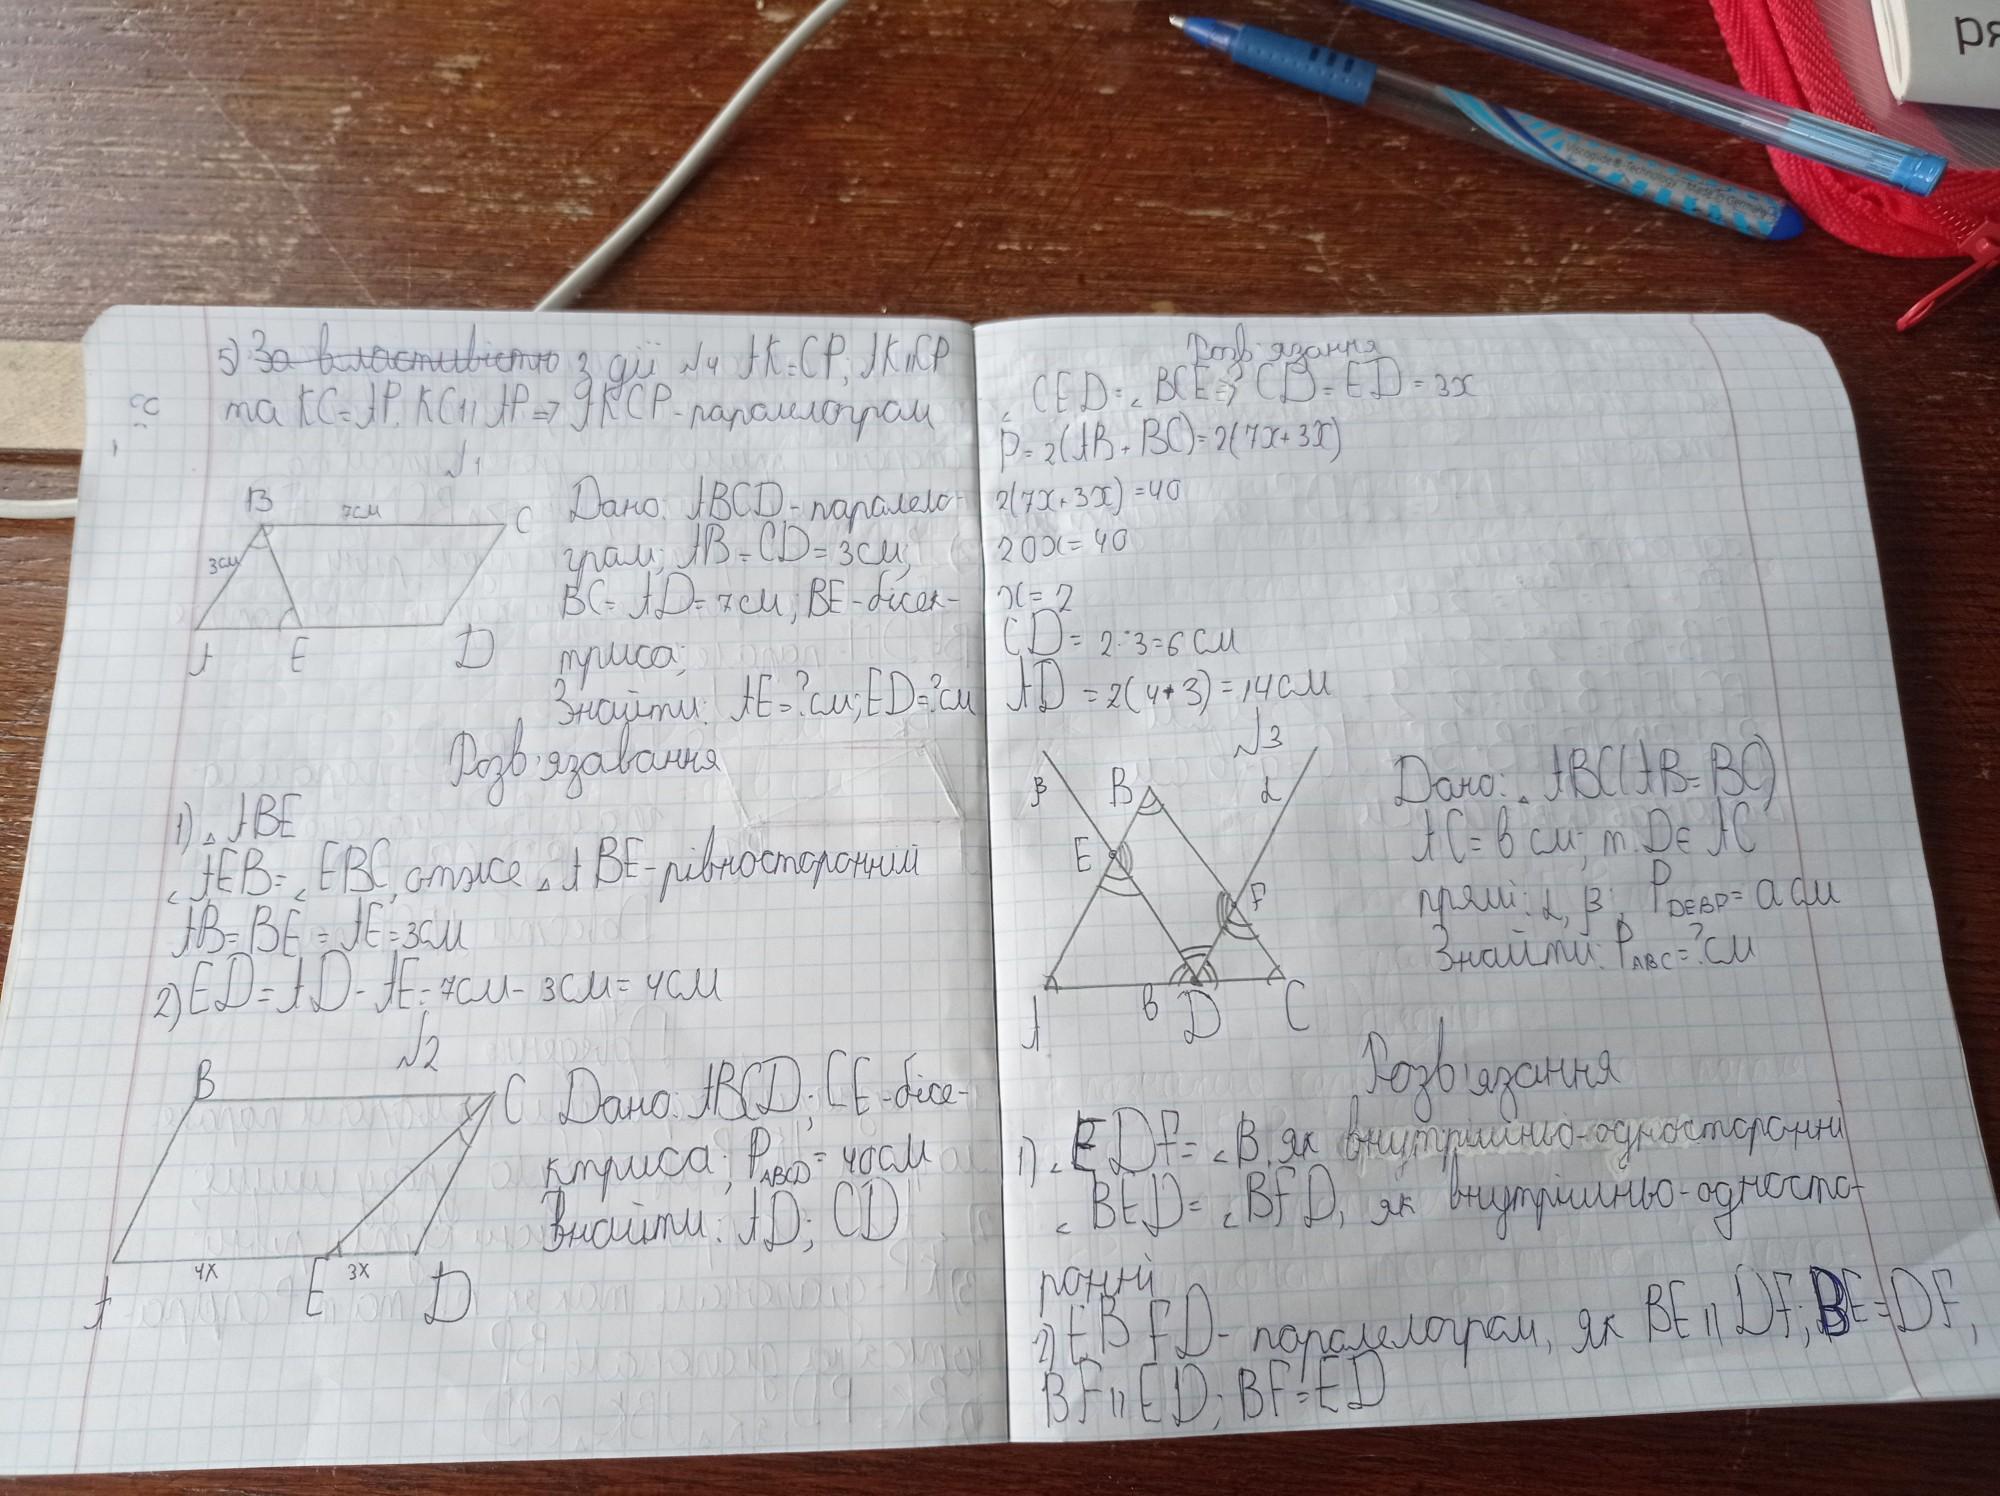 ря
Viscoglide® - Technology Made in Germany
5) За властивістю з дії №4 AK=CP; AK||CP
та KC=AP, KC||AP => AKCP-паралелограм
№1
B 7см C
3см
A E D
Дано: ABCD-паралело-
грам; AB=CD=3см;
BC=AD=7см; BE-бісек-
триса;
Знайти: AE=?см; ED=?см
Розв'язавання
1) △ABE
∠AEB=∠EBC, отже △ABE-рівносторонний
AB=BE=AE=3см
2) ED=AD-AE=7см-3см=4см
№2
B C
A 4x E 3x D
Дано: ABCD; CE-бісе-
ктриса; P ABCD=40см
Знайти: AD; CD
Розв'язання
∠CED=∠BCE=> CD=ED=3x
P=2(AB+BC)=2(7x+3x)
2(7x+3x)=40
20x=40
x=2
CD=2·3=6см
AD=2(4+3)=14см
№3
β B α
E F
A в D C
Дано: △ABC(AB=BC)
AC=в см; т. D∈AC
прямі: α, β; P DEBF=a см
Знайти: P ABC=?см
Розв'язання
1) ∠EDF=∠B, як внутрішньо-односторонні
∠BED=∠BFD, як внутрішньо-односто-
ронні
2) EBFD-паралелограм, як BE||DF; BE=DF,
BF||ED; BF=ED